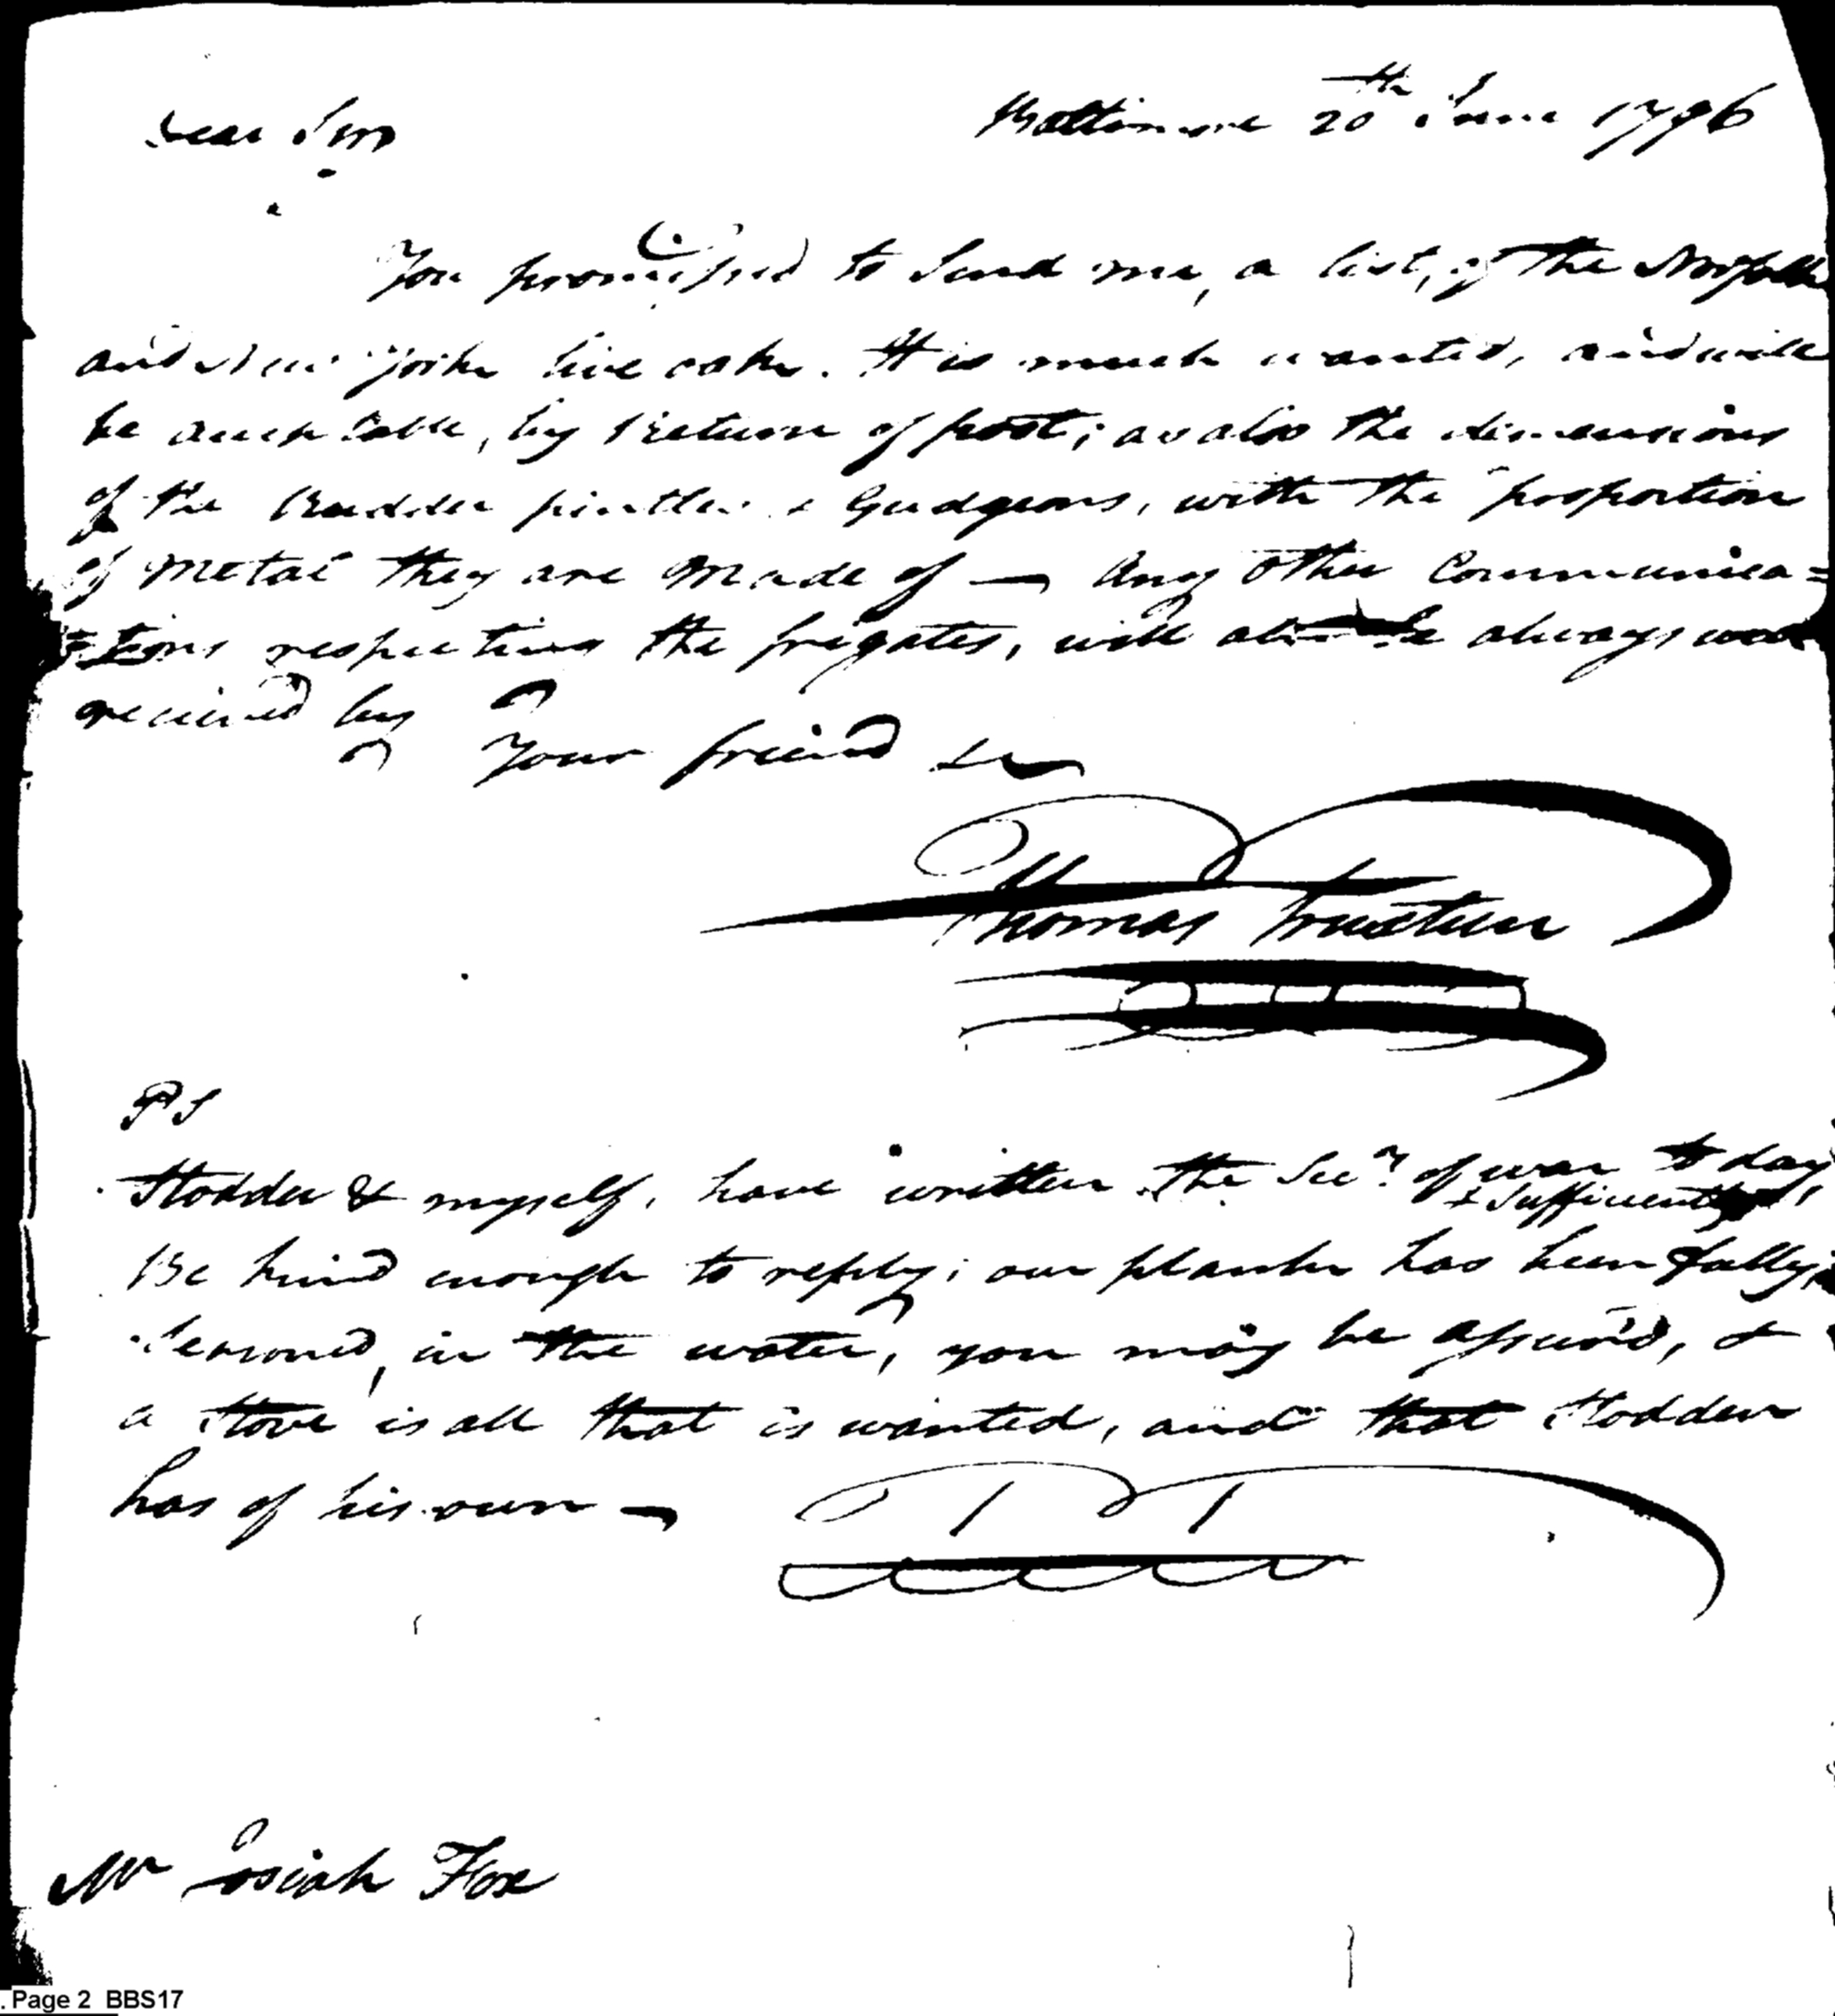 Dear Sir
Baltimore 20th June 1796
You promissed to Send me, a list, of the Norfolk
and New york live oake. It is much wanted, and will
be acceptable, by return of post; as also the dimensions
of the Rudder pintles & Gudgeons, with the proportion
of Metal they are Made of — Any other Communica=
=tions respecting the frigates, will be always well
received by
Your friend &c
Thomas Truxtun
PS
Stodder & myself, have written the Secy of war to day,
& Sufficiently
Be kind enough to reply; our plank has been fully,
Seasoned, in the water, you may be assured, &
a Stove is all that is wanted, and that Stodder
has of his own —
TT
Mr Josiah Fox
. Page 2 BBS17